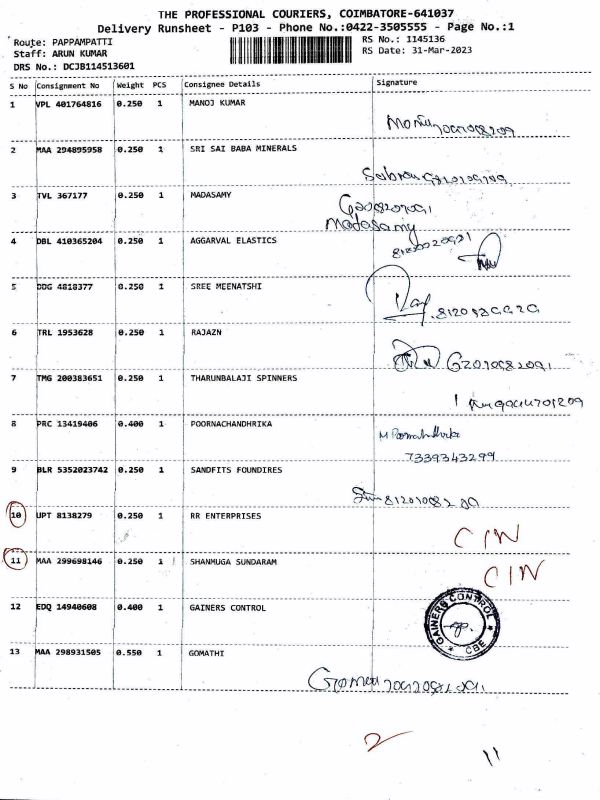 THE PROFESSIONAL COURIERS, COIMBATORE-641037
Delivery Runsheet - P103 - Phone No.:0422-3505555 - Page No.:1
Route: PAPPAMPATTI
Staff: ARUN KUMAR
DRS No.: DCJB114513601
RS No.: 1145136
RS Date: 31-Mar-2023
S No Consignment No Weight PCS Consignee Details Signature
1 VPL 401764816 0.250 1 MANOJ KUMAR
2 MAA 294895958 0.250 1 SRI SAI BABA MINERALS
3 TVL 367177 0.250 1 MADASAMY
Madasamy
4 DBL 410365204 0.250 1 AGGARVAL ELASTICS
5 DDG 4818377 0.250 1 SREE MEENATSHI
6 TRL 1953628 0.250 1 RAJAZN
7 TMG 200383651 0.250 1 THARUNBALAJI SPINNERS
8 PRC 13419406 0.400 1 POORNACHANDHRIKA
7339343299
9 BLR 5352023742 0.250 1 SANDFITS FOUNDIRES
10 UPT 8138279 0.250 1 RR ENTERPRISES CIN
11 MAA 299698146 0.250 1 SHANMUGA SUNDARAM CIN
12 EDQ 14940608 0.400 1 GAINERS CONTROL
GAINERS CONTROL * CBE *
13 MAA 298931505 0.550 1 GOMATHI
2
11